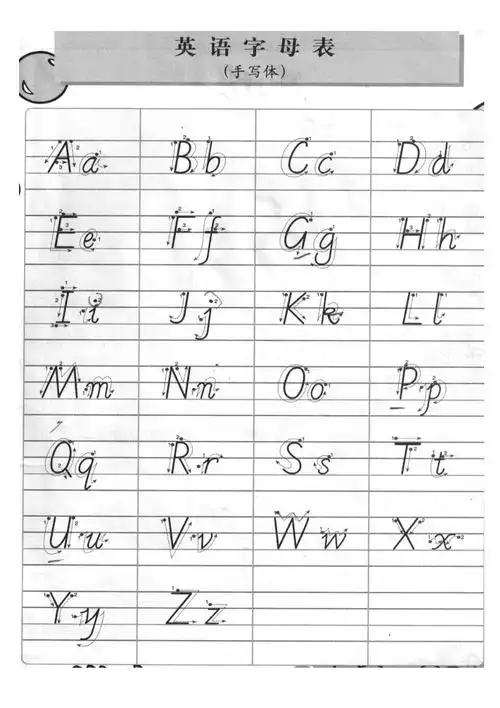 英语字母表
(手写体)
Aa Bb Cc Dd
Ee Ff Gg Hh
Ii Jj Kk Ll
Mm Nn Oo Pp
Qq Rr Ss Tt
Uu Vv Ww Xx
Yy Zz